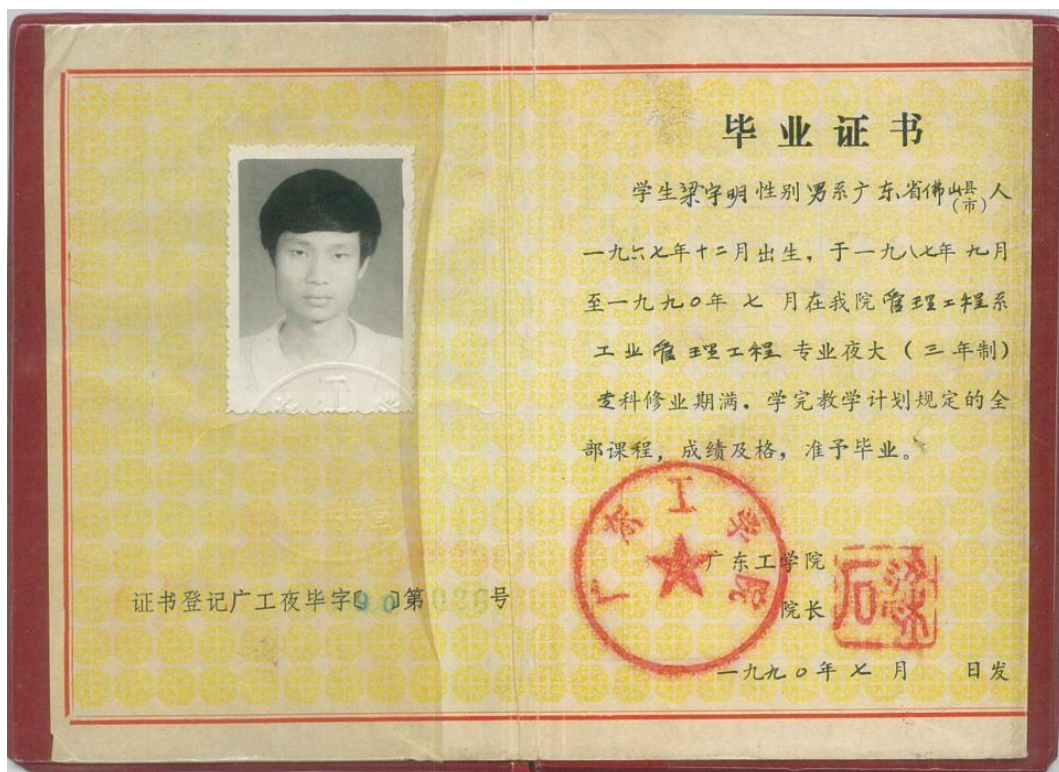 毕业证书
学生梁宇明性别男系广东省佛山县(市)人
一九六七年十二月出生，于一九八七年九月
至一九九〇年七月在我院管理工程系
工业管理工程专业夜大（三年制）
专科修业期满。学完教学计划规定的全
部课程，成绩及格，准予毕业。
广东工学院
广东工学院
院长
一九九〇年七月 日发
证书登记广工夜毕字〔90〕第026号